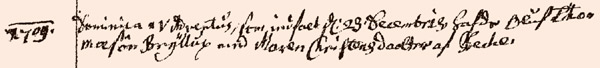 1709. Dominica IV Adventus, som indfaldt d: 22 Decembris hafde Oluf Tho=
masøn Brøllup med Maren Christensdaatter af Beche.